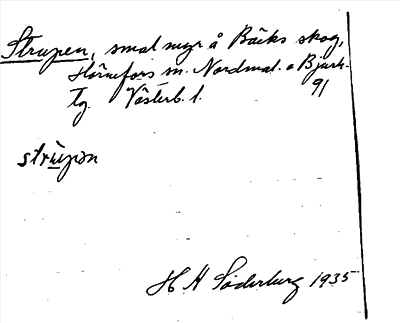 Strupen, smal myr å Bäcks skog,
Hörnefors sn. Nordmal. o Bjurh.
tg. Västerb. l. 91
strùpən
H. H Söderberg 1935